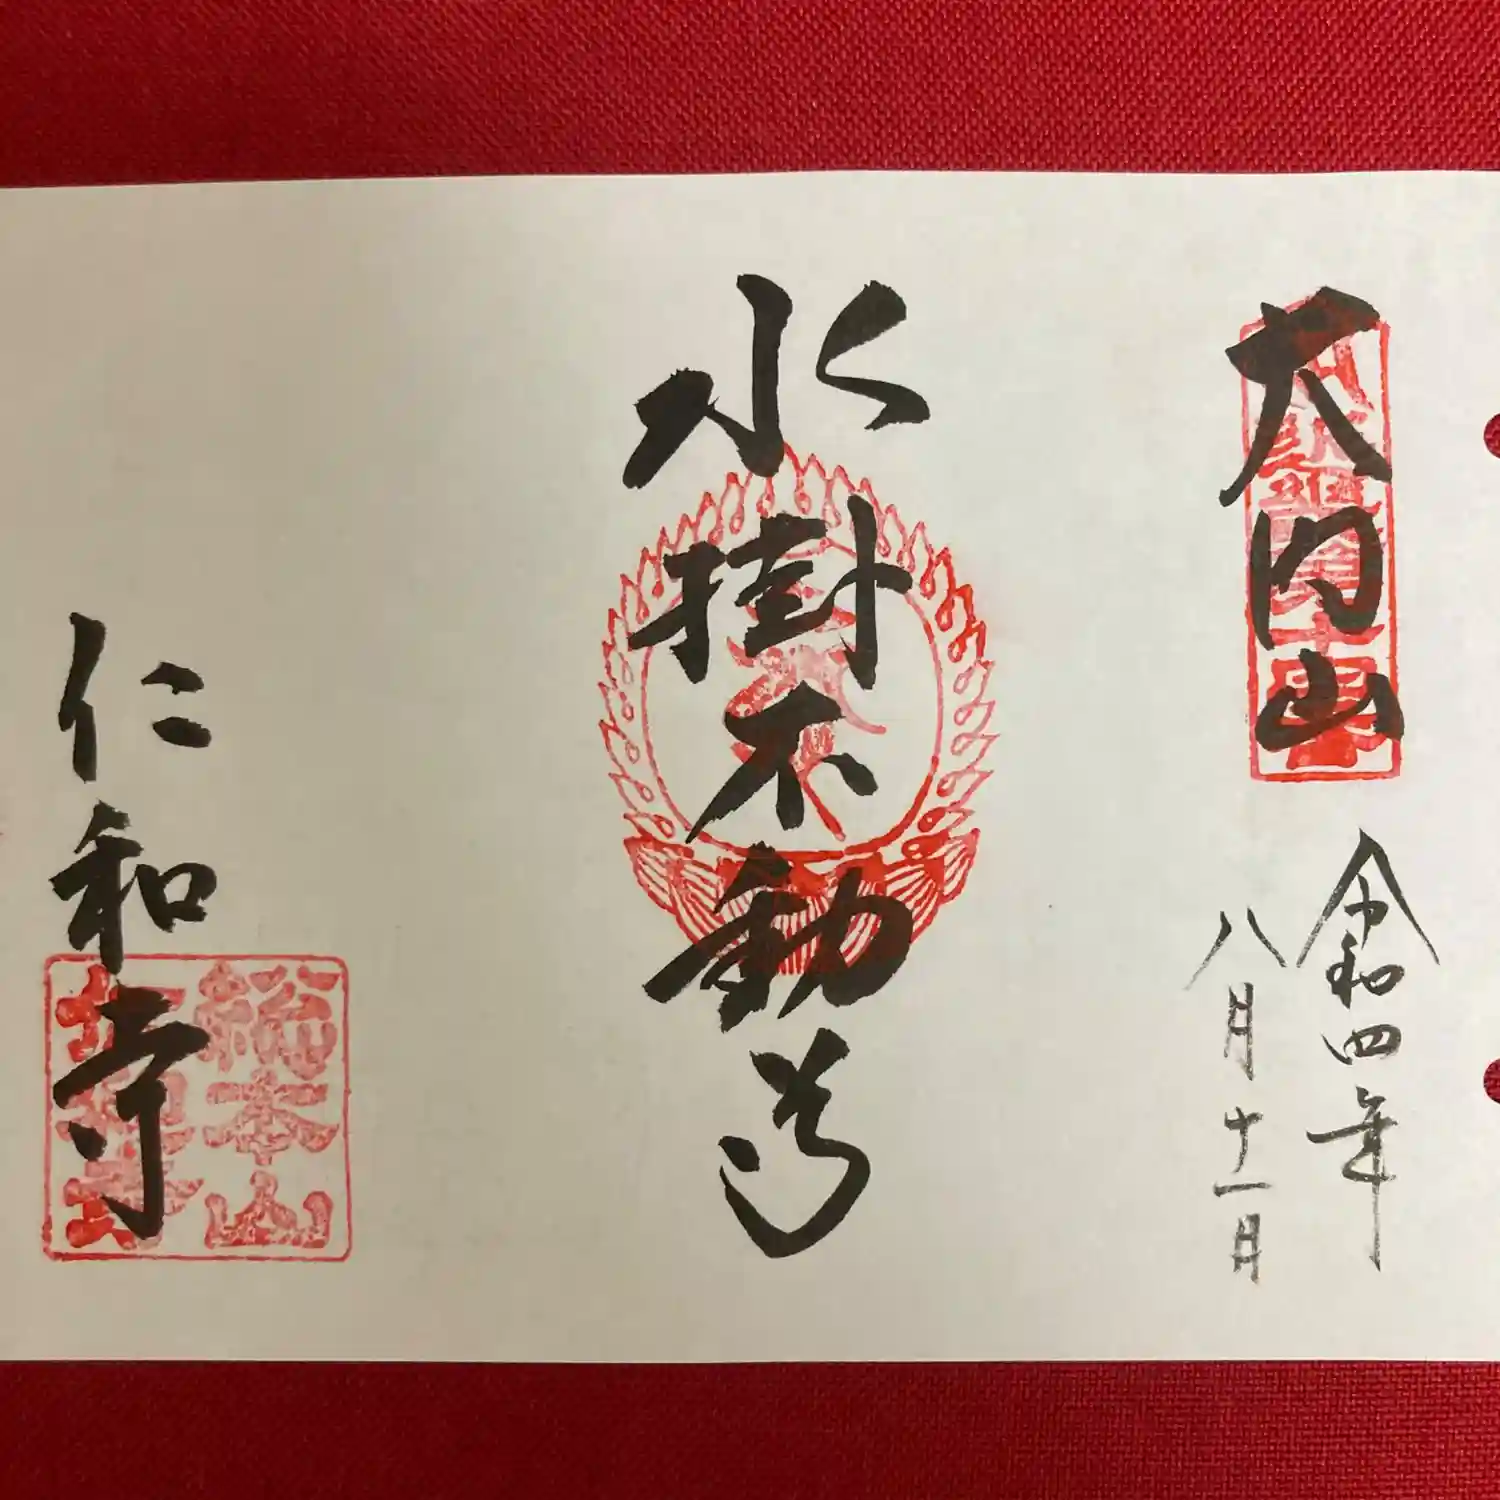 大内山
令和四年
八月十一日
水掛不動尊
仁和寺
総本山
仁和寺